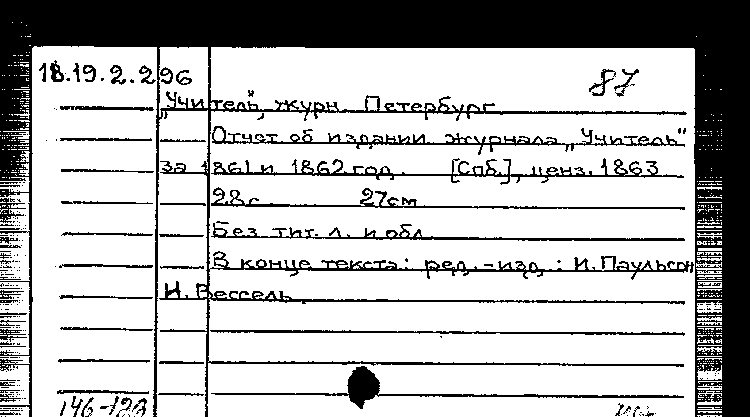 18.19.2.296
87
„Учитель", журн. Петербург
Отчет об издании журнала „Учитель"
за 1861 и 1862 год. [Спб.], ценз. 1863
28 с. 27 см
Без тит. л. и обл.
В конце текста: ред.-изд.: И. Паульсон
Н. Вессель.